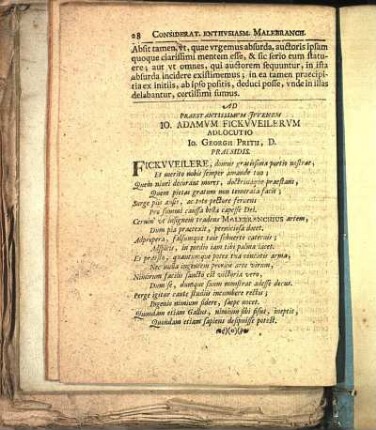 28 CONSIDERAT. ENTHVSIASM. MALEBRANCH.
Absit tamen, vt, quae vrgemus absurda, auctoris ipsam
quoque clarissimi mentem esse, & sic serio eum statu-
ere; aut vt omnes, qui auctorem sequuntur, in ista
absurda incidere existimemus; in ea tamen praecipi-
tia ex initiis, ab ipso positis, deduci posse, vnde in illas
delabantur, certissimi sumus.
AD
PRAESTANTISSIMVM JVVENEM
IO. ADAMVM FICKVVEILERVM
ADLOCUTIO
Io. GEORGII PRITII, D.
PRAESIDIS.
FICKVVEILERE, domus gratissima portio nostrae,
Et merito nobis semper amande tuo;
Quem niuei decorant mores, doctrinaque praestans,
Quem pietas gratum non temerata facit;
Surge piis ausis, ac toto pectore feruens
Pro summi caussa bella capesse Dei.
Cernin' vt insignem tradens MALEBRANCHIUS artem,
Dum pia praetexit, perniciosa docet.
Adpropera, falsumque tuis subuerte cateruis;
Adspicis, in medio iam tibi palma vicet.
Et praesto, quantumque potes tua concute arma,
Nec nulla ingenium prodat arte virum,
Nimirum facilis sancto est victoria vero,
Dum se, dumque suum monstrat adesse decus.
Perge igitur caute studiis incumbere rectis;
Ingenio nimium fidere, saepe nocet.
Quondam etiam Gallus, nimium sibi fisus, ineptit,
Quondam etiam sapiens desipuisse potest.